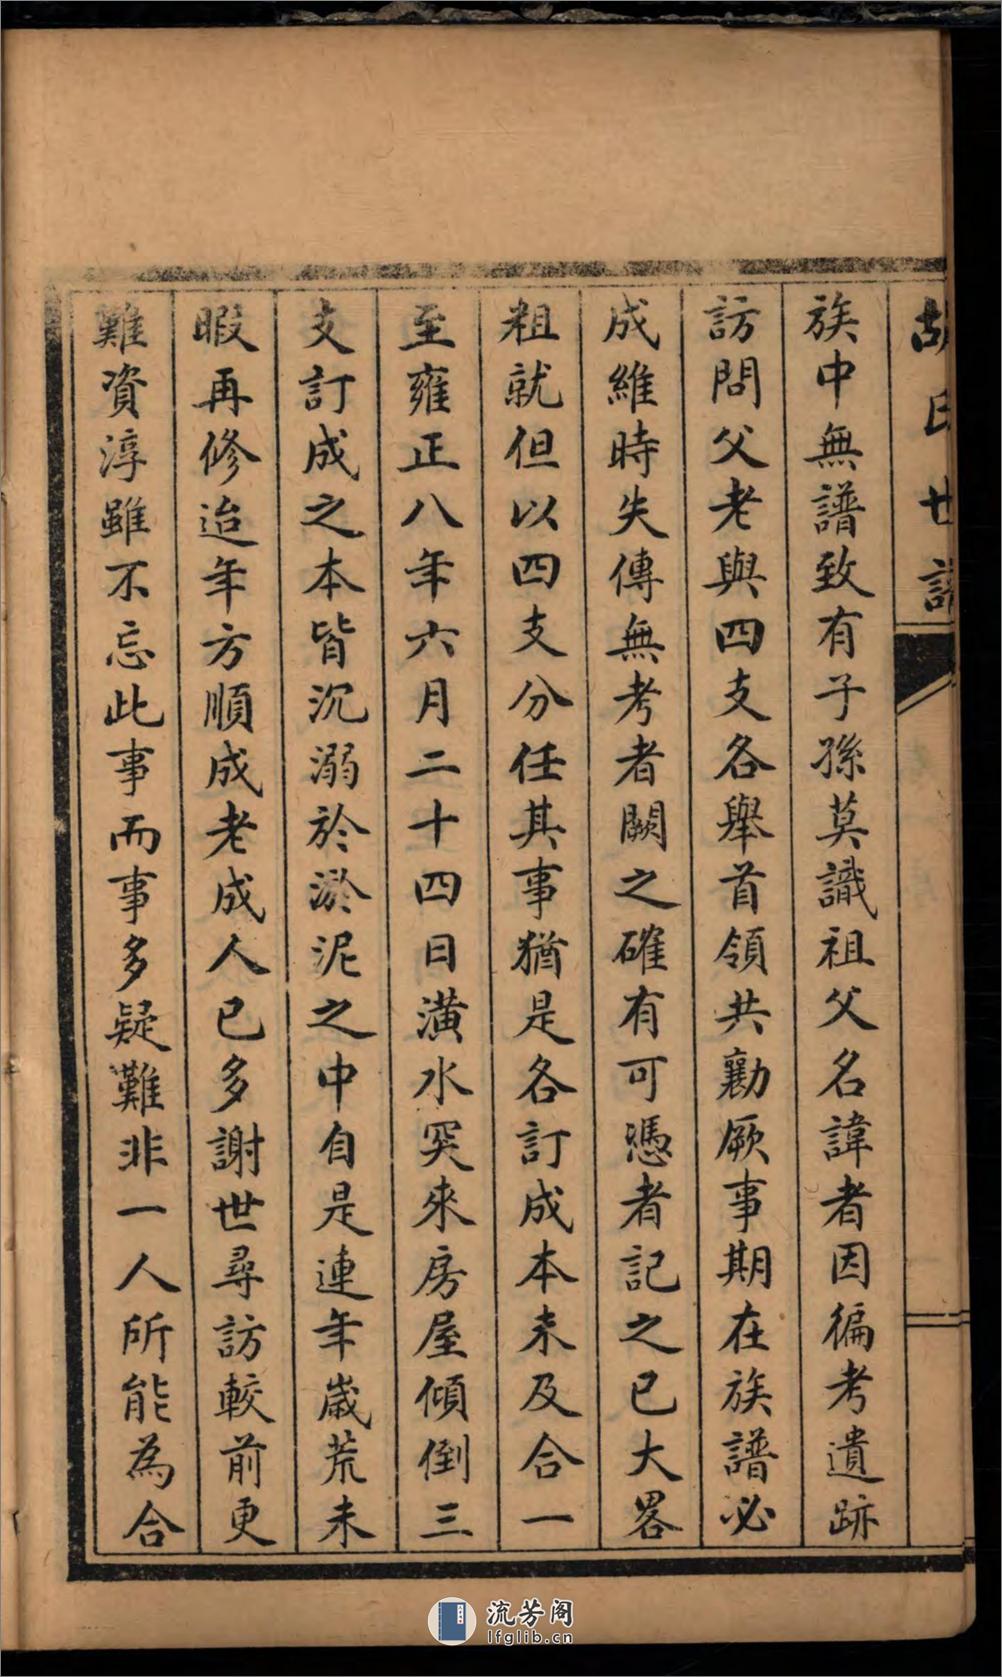 胡氏世譜
族中無譜致有子孫莫識祖父名諱者因徧考遺跡
訪問父老與四支各舉首領共勷厥事期在族譜必
成維時失傳無考者闕之確有可憑者記之已大畧
粗就但以四支分任其事猶是各訂成本未及合一
至雍正八年六月二十四日潢水突來房屋傾倒三
支訂成之本皆沉溺於淤泥之中自是連年歲荒未
暇再修迨年方順成老成人已多謝世尋訪較前更
難資淳雖不忘此事而事多疑難非一人所能為合
流芳阁
lfglib.cn